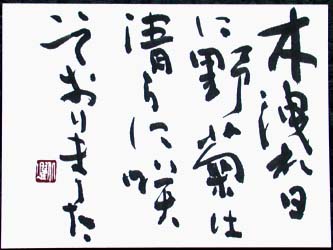 木洩れ日
に野菊は
清らに咲
いておりました